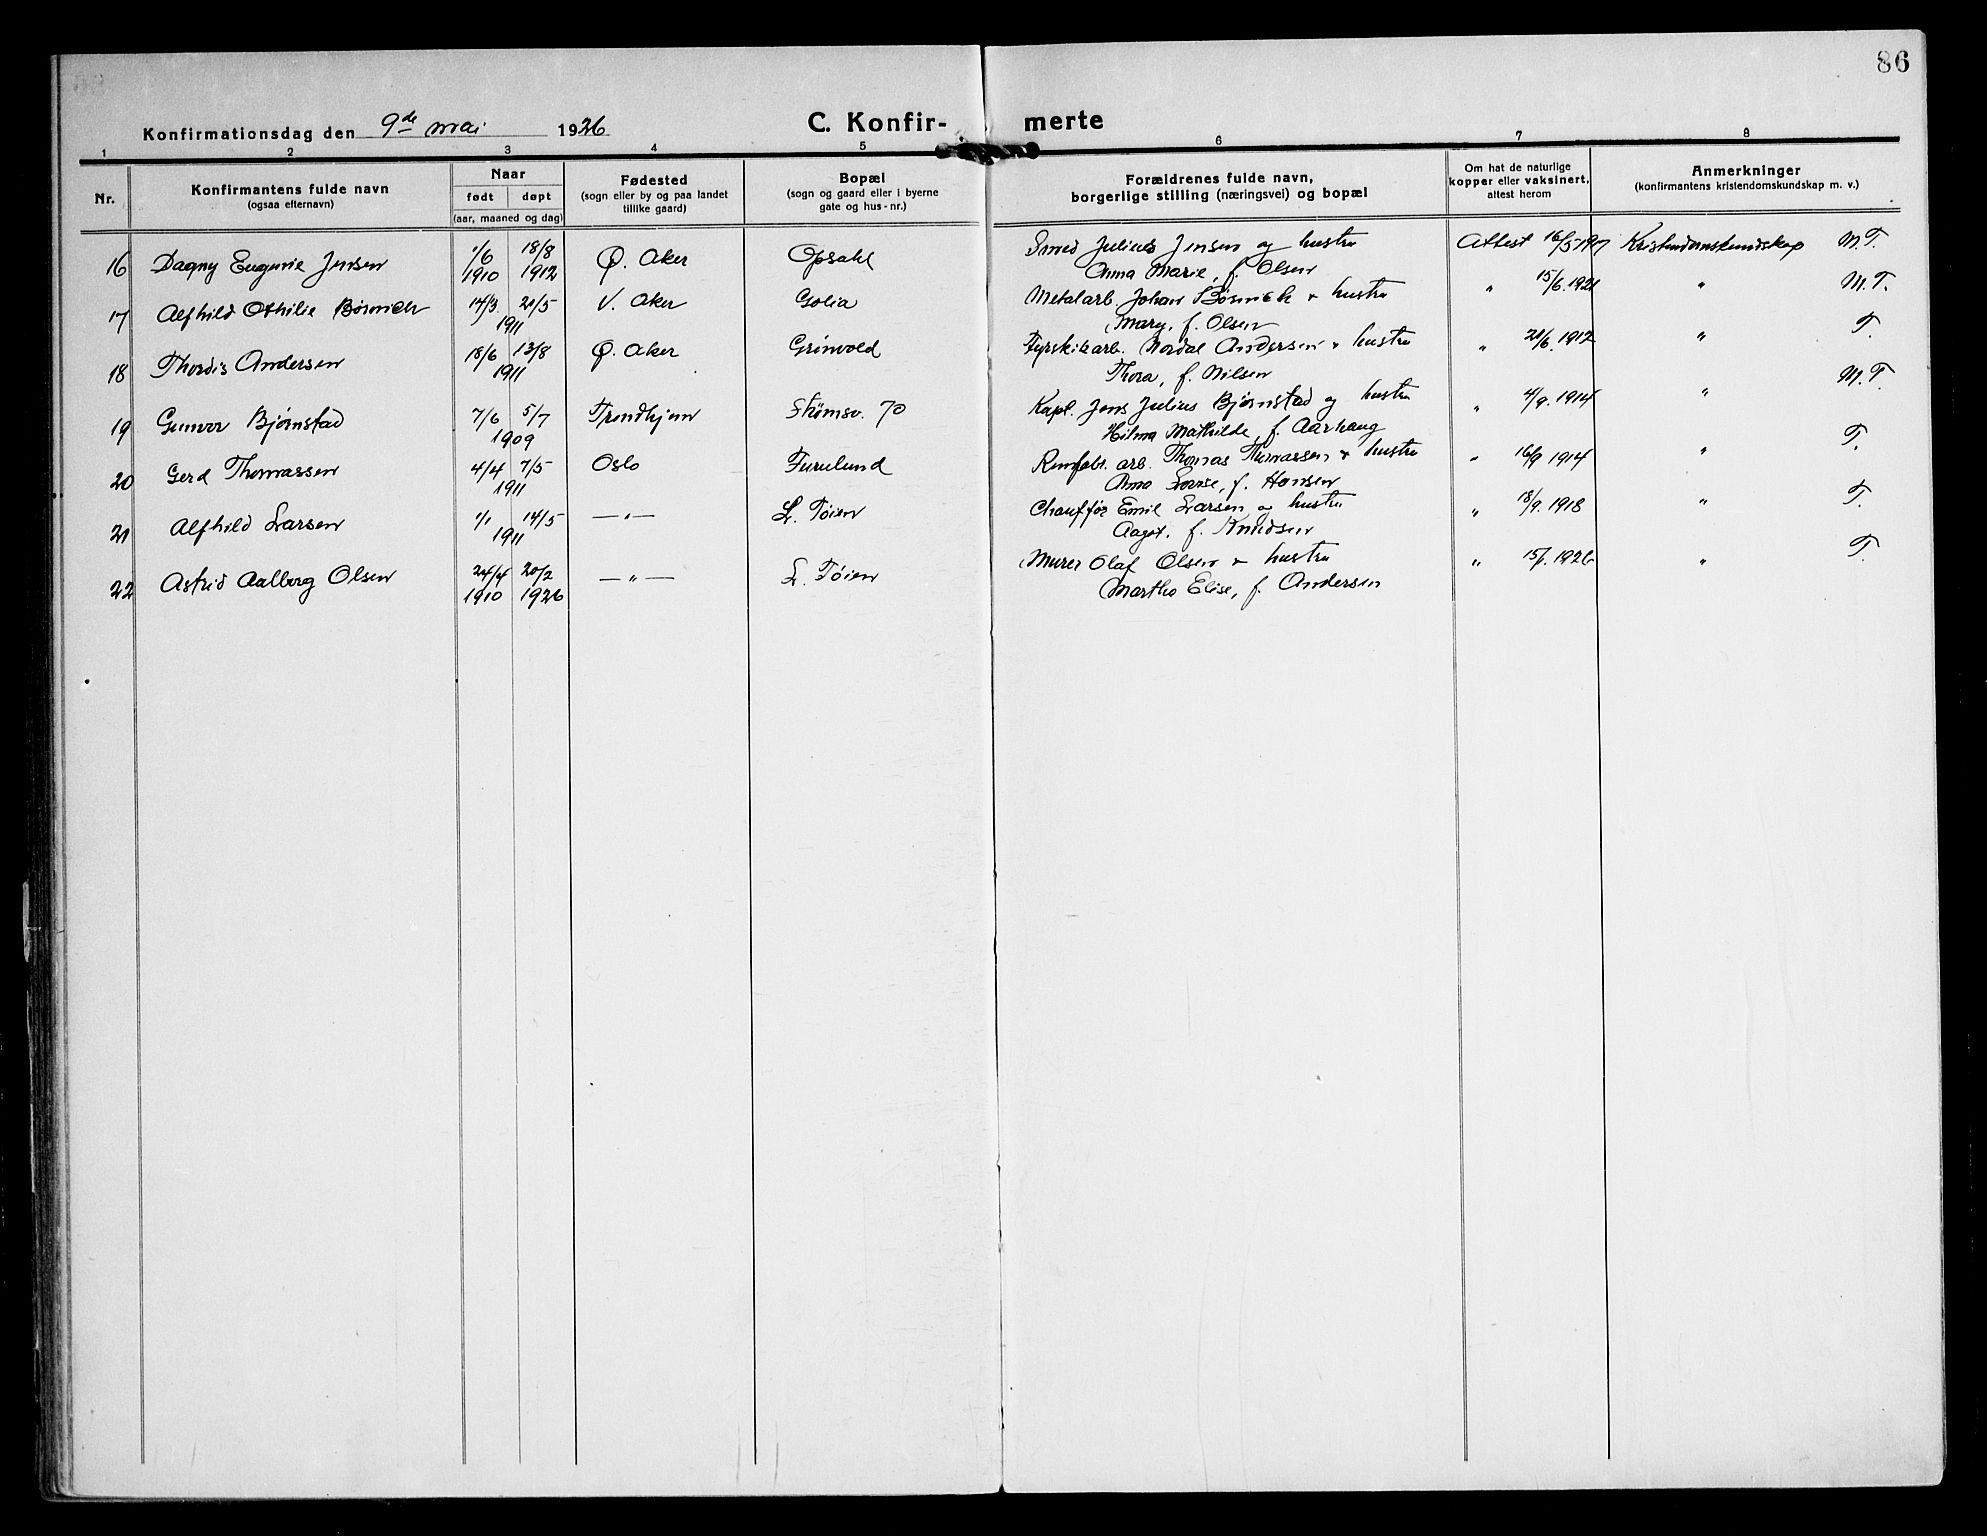 86
Konfirmationsdag den 9de mai 1926
C. Konfir- merte
1 2 3 4 5 6 7 8
Nr.
Konfirmantens fulde navn
(ogsaa efternavn)
Naar
født døpt
(aar, maaned og dag)
Fødested
(sogn eller by og paa landet
tillike gaard)
Bopæl
(sogn og gaard eller i byerne
gate og hus-nr.)
Forældrenes fulde navn,
borgerlige stilling (næringsvei) og bopæl
Om hat de naturlige
kopper eller vaksinert,
attest herom
Anmerkninger
(konfirmantens kristendomskundskap m. v.)
16 Dagny Eugenie Jensen 1/6 1910 18/8 1912 Ø. Aker Opsahl Smed Julius Jensen og hustru Attest 16/5 1917 Kristendomskundskap M.T.
Anna Marie, f. Olsen
17 Alfhild Othilie 14/3 21/5 V. Aker Golia Metalarb. Johan + hustru " 15/6. 1921 " M.T.
1911 Mary, f. Olsen
18 Thordis Andersen 18/6 13/8 Ø. Aker Grönvold Fyrstikarb. Nordal Andersen + hustru " 21/6. 1912 " T.
1911 Thora, f. Nilsen
19 Gunvor Bjørnstad 7/6 5/7 Trondhjem Strømsv. 70 Kapt. Jens Julius Bjørnstad og hustru " 4/9. 1914 " M.T.
1909 Hilma Mathilde, f. Aarhaug
20 Gerd Thomassen 4/4 7/5 Oslo Furulund arb. Thomas Thomassen + hustru " 16/9 1914 " T.
1911 Anna Lovise, f. Hansen
21 Alfhild Larsen 1/1 14/5 —"— L. Tøien Chauffør Emil Larsen og hustru " 18/9. 1918 " T.
1911 Aagot, f. Knudsen
22 Astrid Aalberg Olsen 24/4 20/2 —"— L. Tøien Murer Olaf Olsen + hustru " 1926 " T.
1910 1926 Martha Elise, f. Andersen